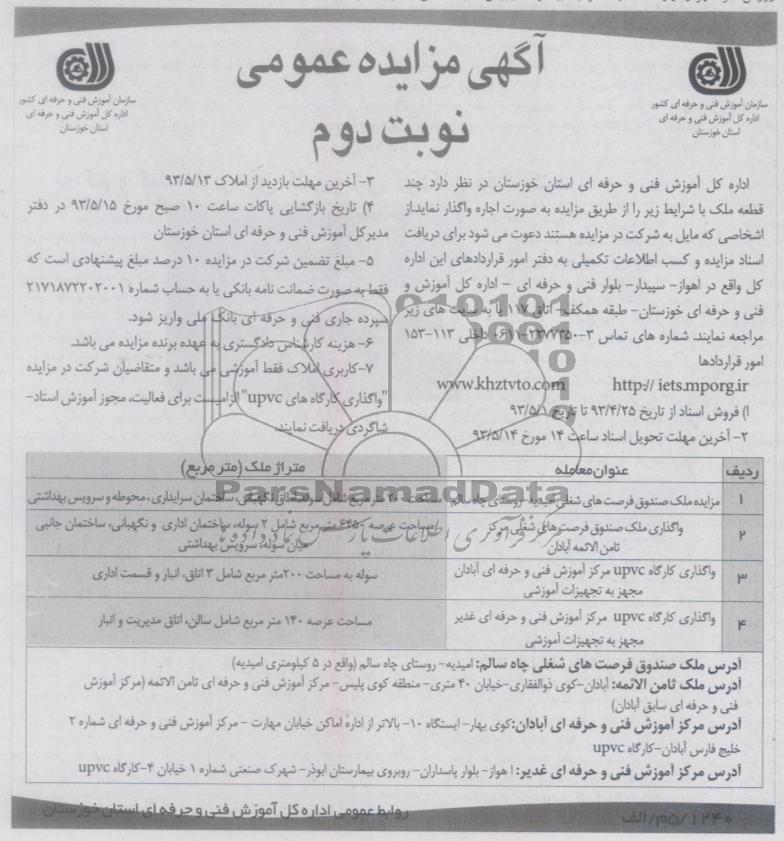 آگهی مزایده عمومی
نوبت دوم
سازمان آموزش فنی و حرفه ای کشور
اداره کل آموزش فنی و حرفه ای
استان خوزستان
سازمان آموزش فنی و حرفه ای کشور
اداره کل آموزش فنی و حرفه ای
استان خوزستان
اداره کل آموزش فنی و حرفه ای استان خوزستان در نظر دارد چند
قطعه ملک با شرایط زیر را از طریق مزایده به صورت اجاره واگذار نماید.از
اشخاصی که مایل به شرکت در مزایده هستند دعوت می شود برای دریافت
اسناد مزایده و کسب اطلاعات تکمیلی به دفتر امور قراردادهای این اداره
کل واقع در اهواز- سپیدار- بلوار فنی و حرفه ای - اداره کل آموزش و
فنی و حرفه ای خوزستان- طبقه همکف- اتاق ۱۱۷ یا به سایت های زیر
مراجعه نمایند. شماره های تماس ۳-۲۲۷۷۳۵۰-۰۶۱۱ داخلی ۱۱۳-۱۵۳
امور قراردادها
http:// iets.mporg.ir www.khztvto.com
۱) فروش اسناد از تاریخ ۹۳/۴/۲۵ تا تاریخ ۹۳/۵/۱
۲- آخرین مهلت تحویل اسناد ساعت ۱۴ مورخ ۹۳/۵/۱۴
۳- آخرین مهلت بازدید از املاک ۹۳/۵/۱۳
۴) تاریخ بازگشایی پاکات ساعت ۱۰ صبح مورخ ۹۳/۵/۱۵ در دفتر
مدیرکل آموزش فنی و حرفه ای استان خوزستان
۵- مبلغ تضمین شرکت در مزایده ۱۰ درصد مبلغ پیشنهادی است که
فقط به صورت ضمانت نامه بانکی یا به حساب شماره ۲۱۷۱۸۷۲۲۰۲۰۰۱
سپرده جاری فنی و حرفه ای بانک ملی واریز شود.
۶- هزینه کارشناس دادگستری به عهده برنده مزایده می باشد.
۷-کاربری املاک فقط آموزشی می باشد و متقاضیان شرکت در مزایده
"واگذاری کارگاه های upvc" الزامیست برای فعالیت، مجوز آموزش استاد-
شاگردی دریافت نمایند.
ردیف عنوان معامله متراژ ملک (متر مربع)
۱ مزایده ملک صندوق فرصت های شغلی امیدیه- روستای چاه سالم مساحت ۲۰۰ متر مربع شامل سوله، اتاق نگهبانی، ساختمان سرایداری، محوطه و سرویس بهداشتی
۲ واگذاری ملک صندوق فرصت های شغلی مرکز
ثامن الائمه آبادان
مساحت عرصه ۶۴۵۰ متر مربع شامل ۲ سوله، ساختمان اداری و نگهبانی، ساختمان جانبی
میان سوله، سرویس بهداشتی
۳ واگذاری کارگاه upvc مرکز آموزش فنی و حرفه ای آبادان
مجهز به تجهیزات آموزشی
سوله به مساحت ۲۰۰متر مربع شامل ۳ اتاق، انبار و قسمت اداری
۴ واگذاری کارگاه upvc مرکز آموزش فنی و حرفه ای غدیر
مجهز به تجهیزات آموزشی
مساحت عرصه ۱۴۰ متر مربع شامل سالن، اتاق مدیریت و انبار
آدرس ملک صندوق فرصت های شغلی چاه سالم: امیدیه- روستای چاه سالم (واقع در ۵ کیلومتری امیدیه)
آدرس ملک ثامن الائمه: آبادان-کوی ذوالفقاری-خیابان ۴۰ متری- منطقه کوی پلیس- مرکز آموزش فنی و حرفه ای ثامن الائمه (مرکز آموزش
فنی و حرفه ای سابق آبادان)
آدرس مرکز آموزش فنی و حرفه ای آبادان:کوی بهار- ایستگاه ۱۰- بالاتر از اداره اماکن خیابان مهارت - مرکز آموزش فنی و حرفه ای شماره ۲
خلیج فارس آبادان-کارگاه upvc
آدرس مرکز آموزش فنی و حرفه ای غدیر: اهواز- بلوار پاسداران- روبروی بیمارستان ابوذر- شهرک صنعتی شماره ۱ خیابان ۴-کارگاه upvc
۱۲۴۰/۵م/الف
روابط عمومی اداره کل آموزش فنی و حرفه ای استان خوزستان
ParsNamadData